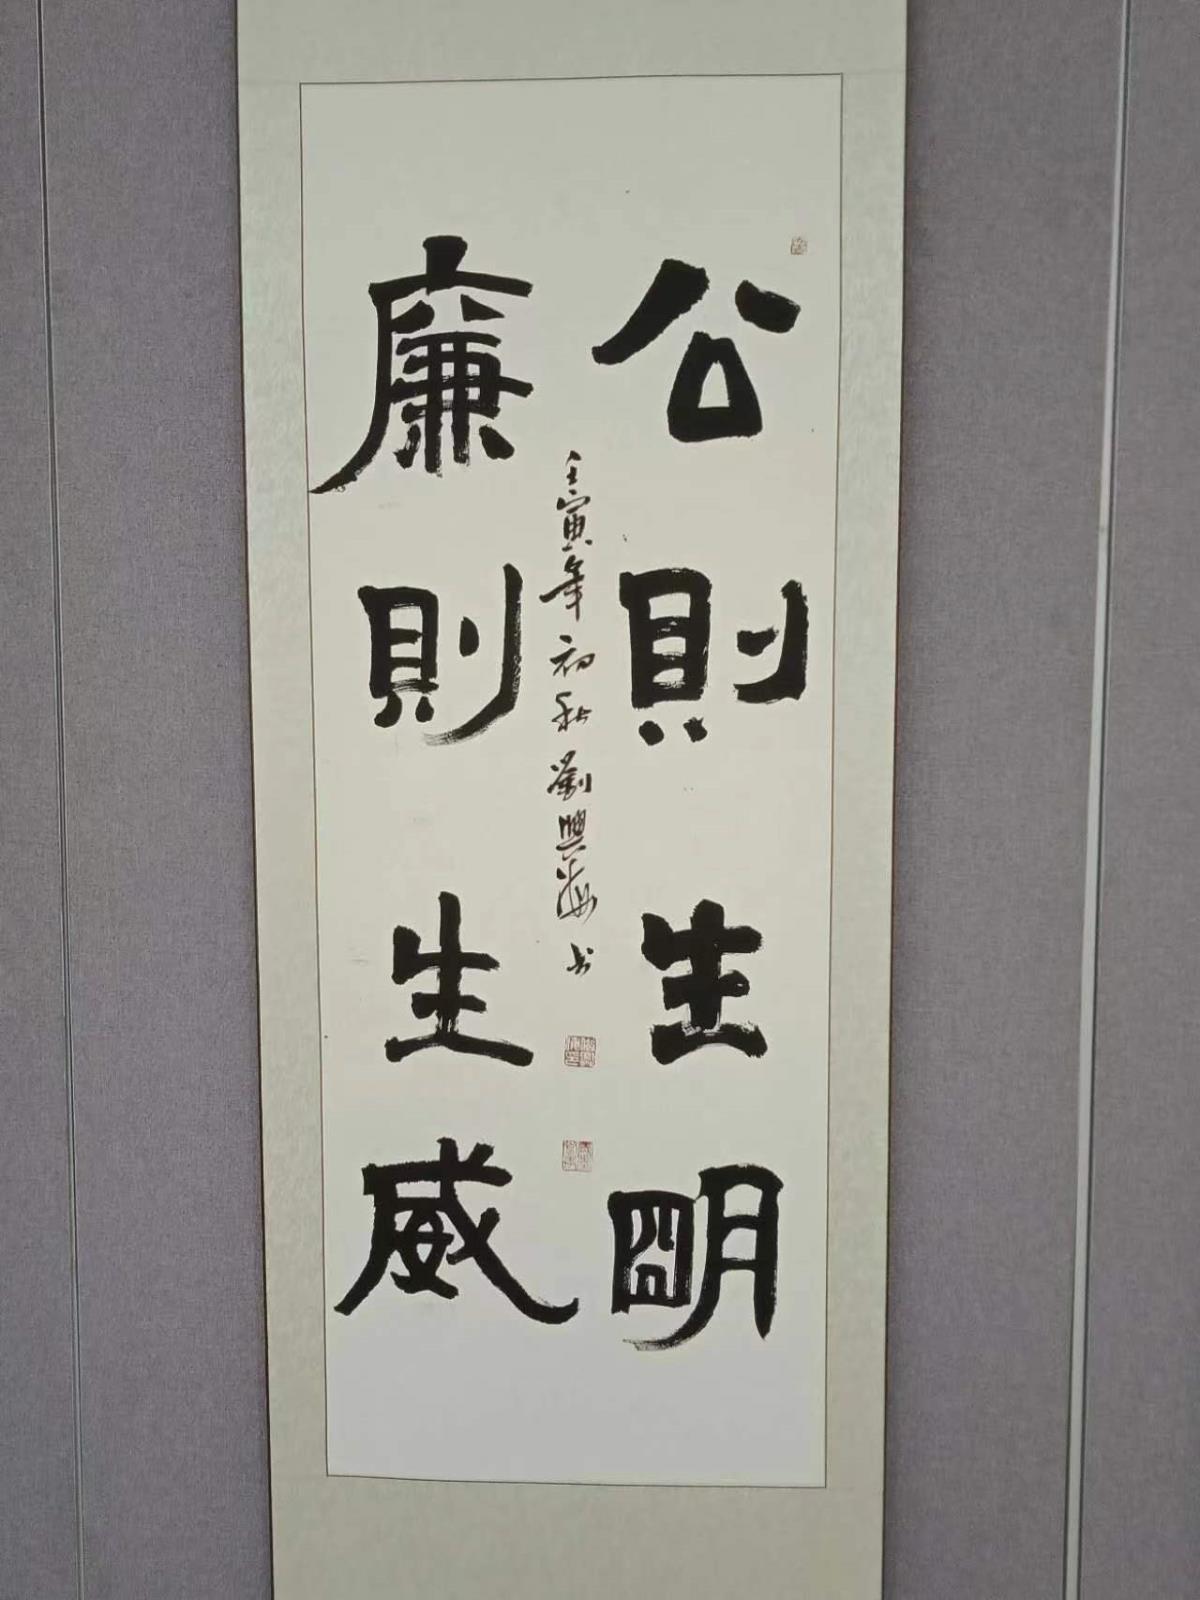 公則生明
壬寅年初秋劉興海书
廉則生威